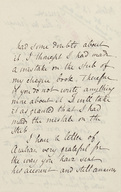 had some doubts about
it. I thought I had made
a mistake on the stub of
my cheque book. Therefore
if you do not write anything
more about it I will take
it as granted that I had
made the mistake on the
stub.
I have a letter of
very grateful for
the way you have sent
his account and still another